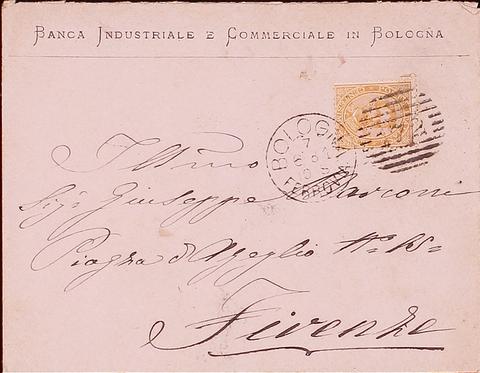 BANCA INDUSTRIALE E COMMERCIALE IN BOLOGNA
BOLOGNA
FERROVIA
Ill:mo
Sig: Giuseppe Marconi
Piazza d'Azeglio N:o 15=
Firenze